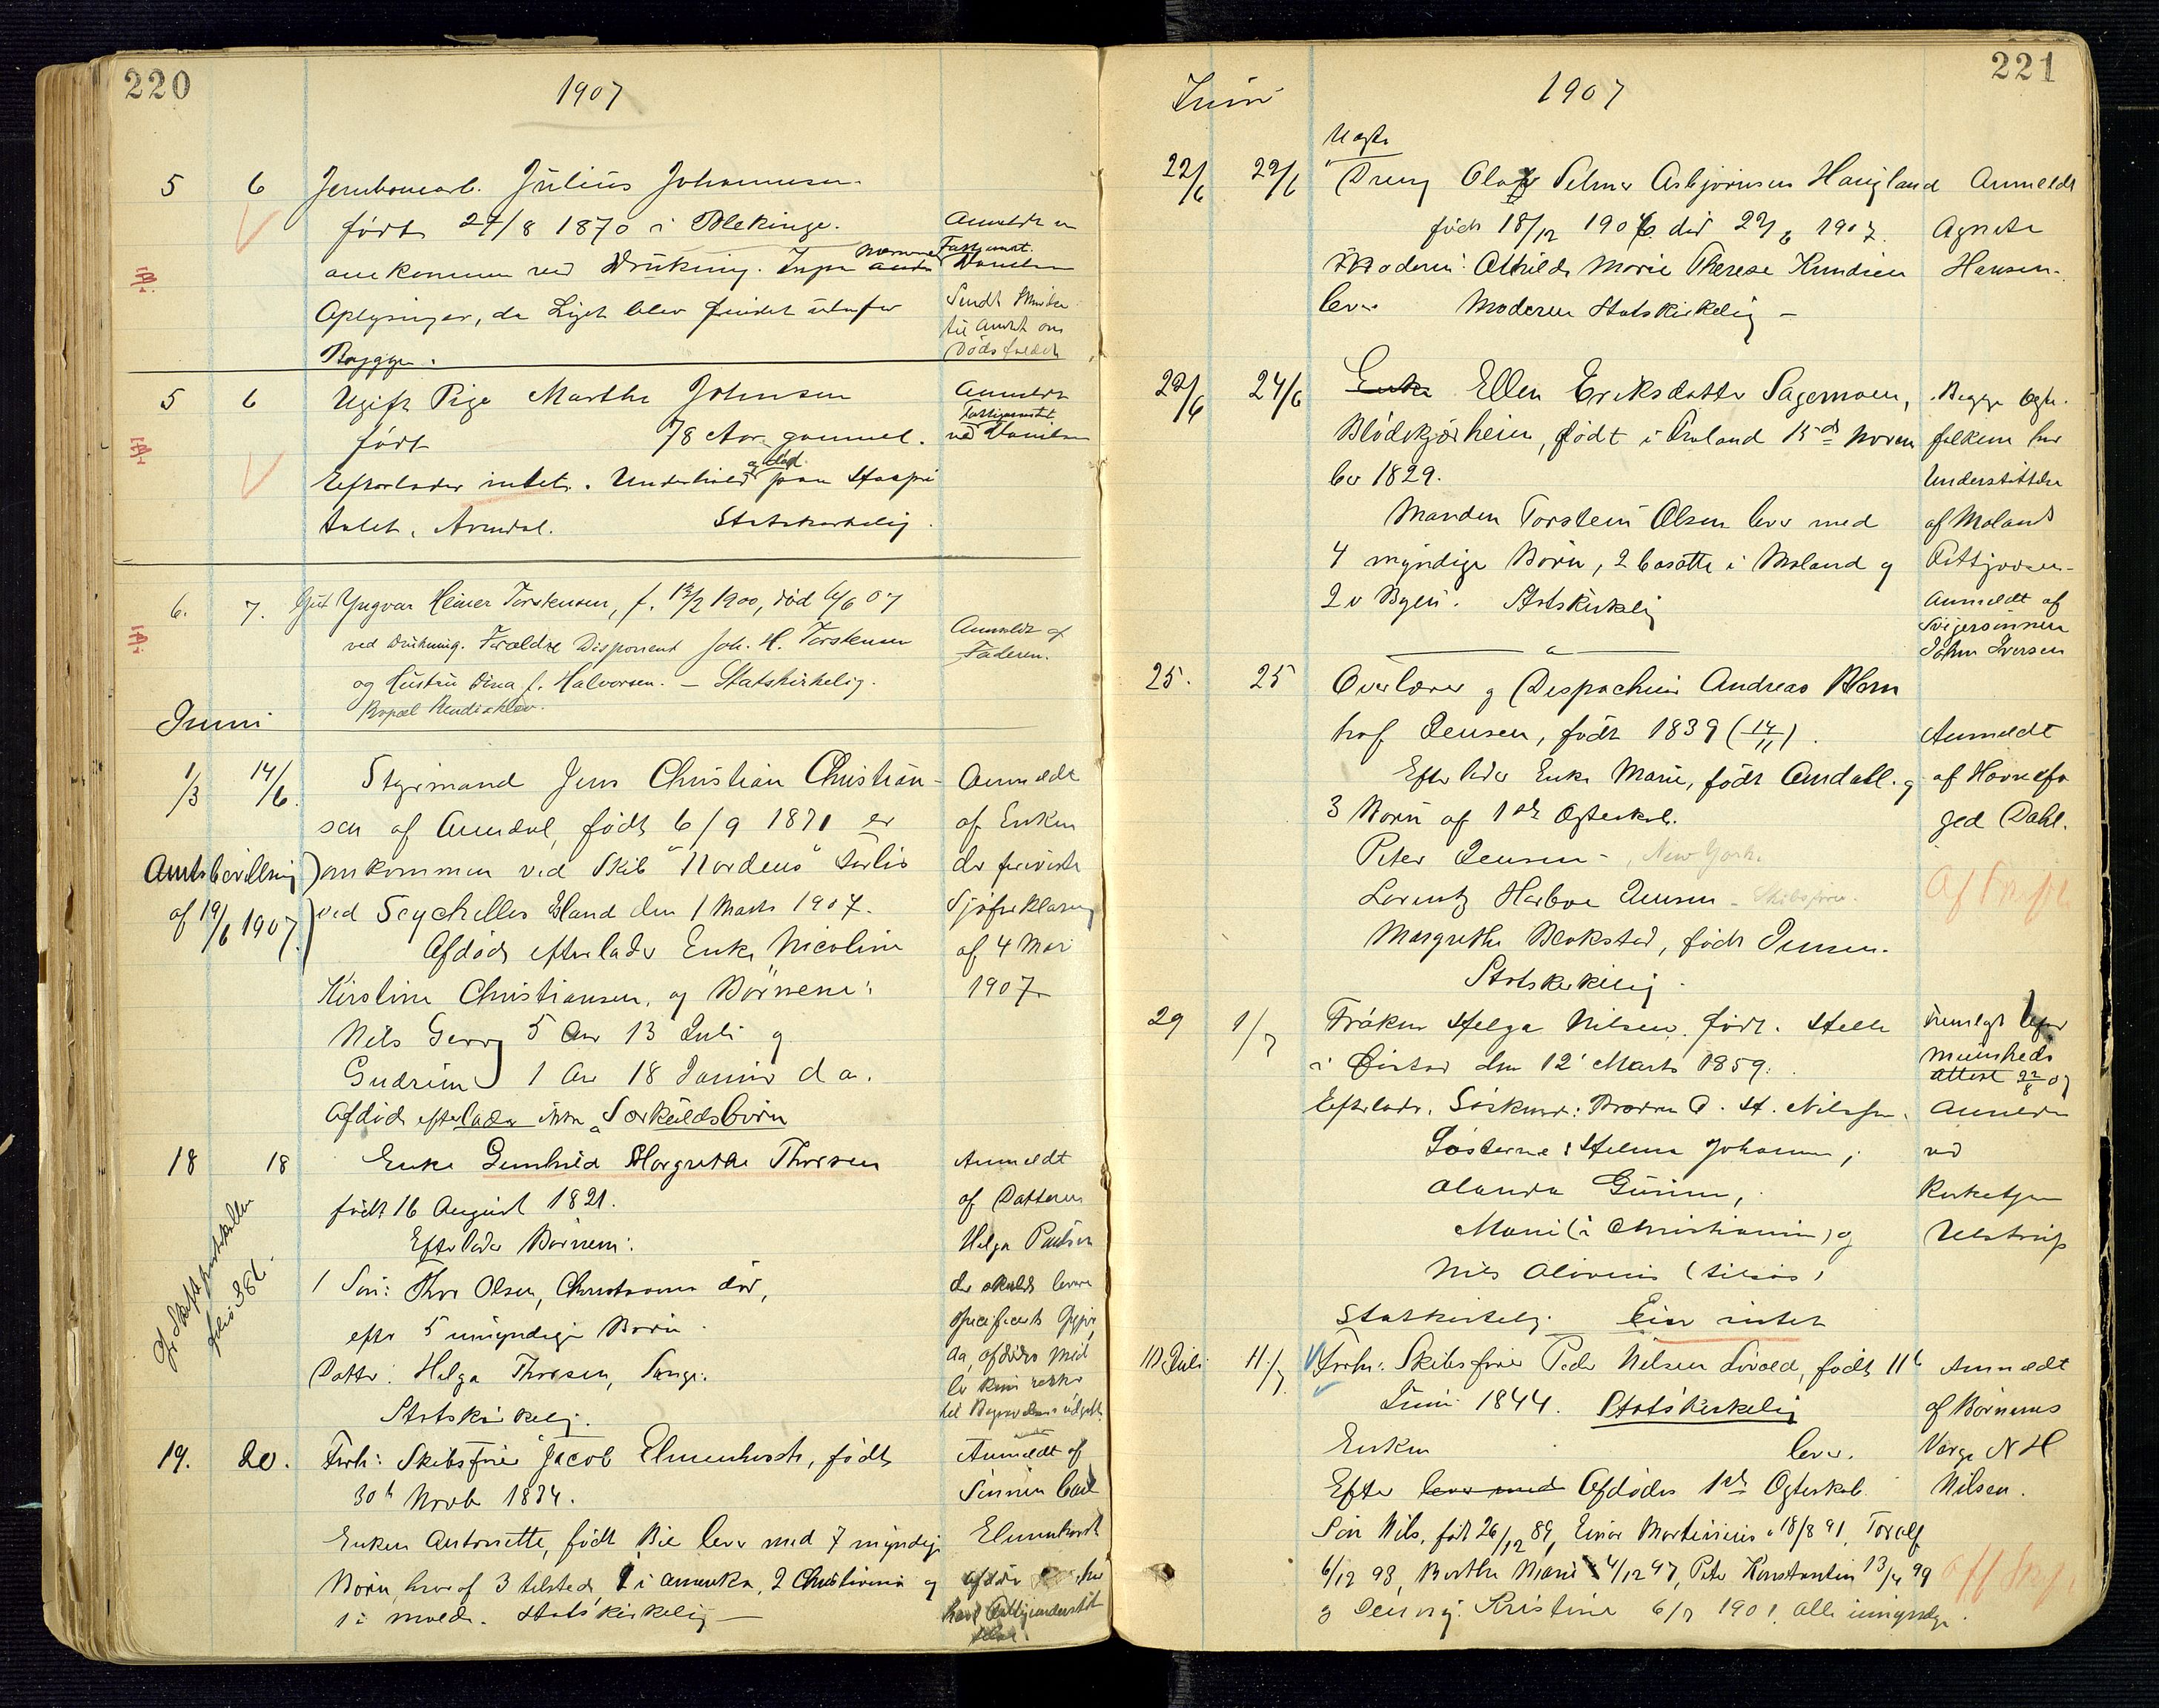 220
1907
5 6 Jernbanearb. Julius Johannesen
født 27/8 1870 i Blekinge.
omkommen ved Drukning. Ingen nærmere
Oplysninger, da Liget blev fundet udenfor
Brygge.
Anmeldt
Fattigvæst. Danielsen
Sendt
til Amtet om
Dødsfaldet
5 6 Ugift Pige Marthe Johnsen
født 78 Aar gammel.
Efterlader intet. Underhold paa Hospi
talet, Arendal. Statskirkelig.
Anmeldt
ved Danielsen
6. 7. Gut Yngvar Heiner Torstensen, f. 1900, død 6/6 07
ved Drukning. Forældre Disponent Joh. H. Torstensen
og Hustru Dina f. Halvorsen. – Statskirkelig.
Anmeldt af
Faderen.
Juni
1/3 14/6 Styrmand Jens Christian Christian-
sen af Arendal, født 6/9 1871 er
omkommen ved Skib "Nordens" Forlis
ved Seychelles Eiland den 1 Marts 1907.
Afdøde efterlader Enke Nicoline
Kirstine Christiansen, og Børnene:
Nils Georg 5 Aar 13 Juli og
Gudrun 1 Aar 18 Januar d.a.
Afdøde efterlader ikke Særkuldsbørn
Amtsbevilling
af 19/6 1907.
Anmeldt
af Enken
der foreviste
Sjøforklaring
af 4 Mai
1907
18 18 Enke Gunhild Margrethe Thorsen
født 16 August 1821.
Efterlader Børnene:
1 Søn: Thor Olsen, død,
efter 5 umyndige Børn.
Datter: Helga Thorsen,
Statskirkelig.
Anmeldt
af Datteren
Helga Paulsen
der skulde levere
Opgjør,
da afdødes Mid
ler kun rækker
til Begravelsesudgifter
Skifteprotokollen
folio 386.
19. 20. Forh: Skibsfører Jacob Elmenhorst, født
30te Novbr 1834.
Enken Antonette, født Bie lever med 7 myndige
Børn, hvoraf 3 tilstede, 1 i Amerika, 2 Christiania og
1 i Molde. Statskirkelig –
Anmeldt af
Sønnen Carl
Elmenhorst
221
Juni 1907
Uægte
22/6 22/6 Dreng Olaf Selmer Asbjørnsen Haugland
født 18/12 1906 død 22/6 1907.
Moderen: Othilde Marie Therese Knudsen
lever Moderen Statskirkelig –
Anmeldt
Agnete
Hansen.
22/6 24/6 Enke Ellen Eriksdatter Sagemoen,
Blødekjærheien, født i Froland 15de Novem
ber 1829.
Manden Torstein Olsen lever med
4 myndige Børn, 2 bosatte i Moland og
2 i Byen. Statskirkelig
Begge Ægte-
folkene har
Understøttelse
af Molands
Fattigvæsen.
Anmeldt af
Svigersønnen
John Iversen
25. 25 Overlærer og Dispachør Andreas Blom
hof Jensen, født 1839 (14/11).
Efterlader Enke Marie, født Amdahl. og
3 Børn af 1ste Ægteskab.
Peter Jensen – New York
Lorentz Herboe Jensen – Skibsfører.
Margrethe Blakstad, født Jensen.
Statskirkelig.
Anmeldt
af Havnefo
ged Dahl.
29 1/7 Frøken Helga Nilsen. født. Helle
i Øiestad den 12' Marts 1859.
Efterlader Søskende: Broderen A. H. Nilssen,
Søstrene: Helene Johanne,
Alanda Gurine,
Marie (i Christiania) og
Nils Olivius (tilsjøs)
Statskirkelig. Eier intet
Attest 22/8 07
Anmeldt
ved
Kirketjener
Ulstrup
10 Juli 11/7 Forh: Skibsfører Peder Nilsen Løvold, født 11te
Juni 1844. Statskirkelig
Enken lever.
Efter lever med Afdødes 1ste Ægteskab.
Søn Nils, født 26/12 89, Einar Martinius 18/8 91, Toralf
6/12 93, Berthe Marie 4/12 97, Peter Konstantin 13/4 99
og Jenny Kristine 6/7 1901. Alle umyndige.
Anmeldt
af Børnenes
Værge N H
Nilsen.